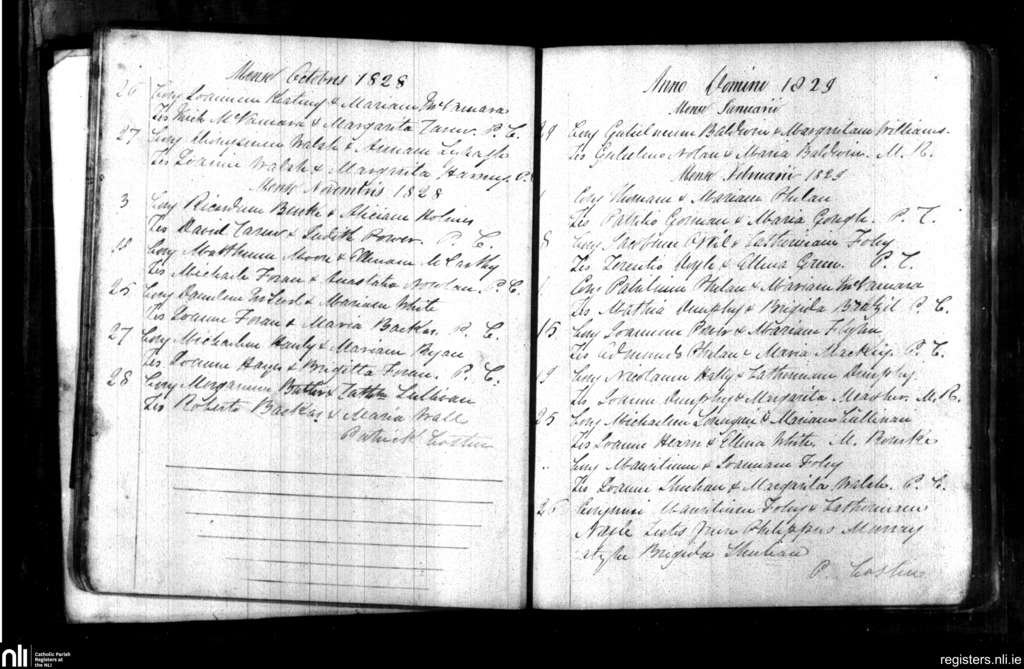 Mense Octobris 1828
26 Conj Joannem Keating & Mariam McNamara
Tes Mich McNamara & Margarita P. C.
27 Conj Dionysium Walsh & Annam
Tes Joanne Walsh & Margarita P.
Mense Novembris 1828
3 Conj Ricardum Burke & Aliciam Holmes
Tes David & Judith Power P. C.
Conj Mattheum Moore & Ellenam McCarthy
Tes Michaele Foran & Anastatia P. C.
25 Conj & Mariam White
Tes Joanne Foran & Maria Backas P. C.
27 Conj Michaelem Hanly & Mariam Ryan
Tes Joanne Hayes & Brigitta Foran. P. C.
28 Conj Morganum Sullivan
Tes Roberto Backas & Maria Wall
Patrick Costin
Anno Domini 1829
Mense Januarii
Conj Gulielmum Baldwin & Margaritam Williams
Tes Gulielmo Nolan & Maria Baldwin. M. R.
Mense Februarii 1829
Conj Thomam & Mariam Phelan
Tes Patritio Gorman & Maria Gough. P. C.
8 Conj & Catherinam Foley
Tes Terentio Doyle & Ellena Green. P. C.
Conj Patritium Phelan & Mariam McNamara
Tes Mathia Dunphy & Brigida P. C.
15 Conj Joannem & Mariam
Tes Edmundo Phelan & Maria Mackey. P. C.
19 Conj Nicolaum Hally & Catherinam Dunphy
Tes Joanne Dunphy & Margarita Meagher. M. R.
25 Conj Michaelem & Mariam Sullivan
Tes Joanne Hearn & Ellena White M. Rourke
.. Conj Mauritium & Joannam Foley
Tes Joanne Sheehan & Margarita Walsh. P. C.
26 Mauritium Foley & Catherinam
Nagle Philippus Murray
Brigida Sheehan
P. Costin
nli
Catholic Parish
Registers at
the NLI
registers.nli.ie